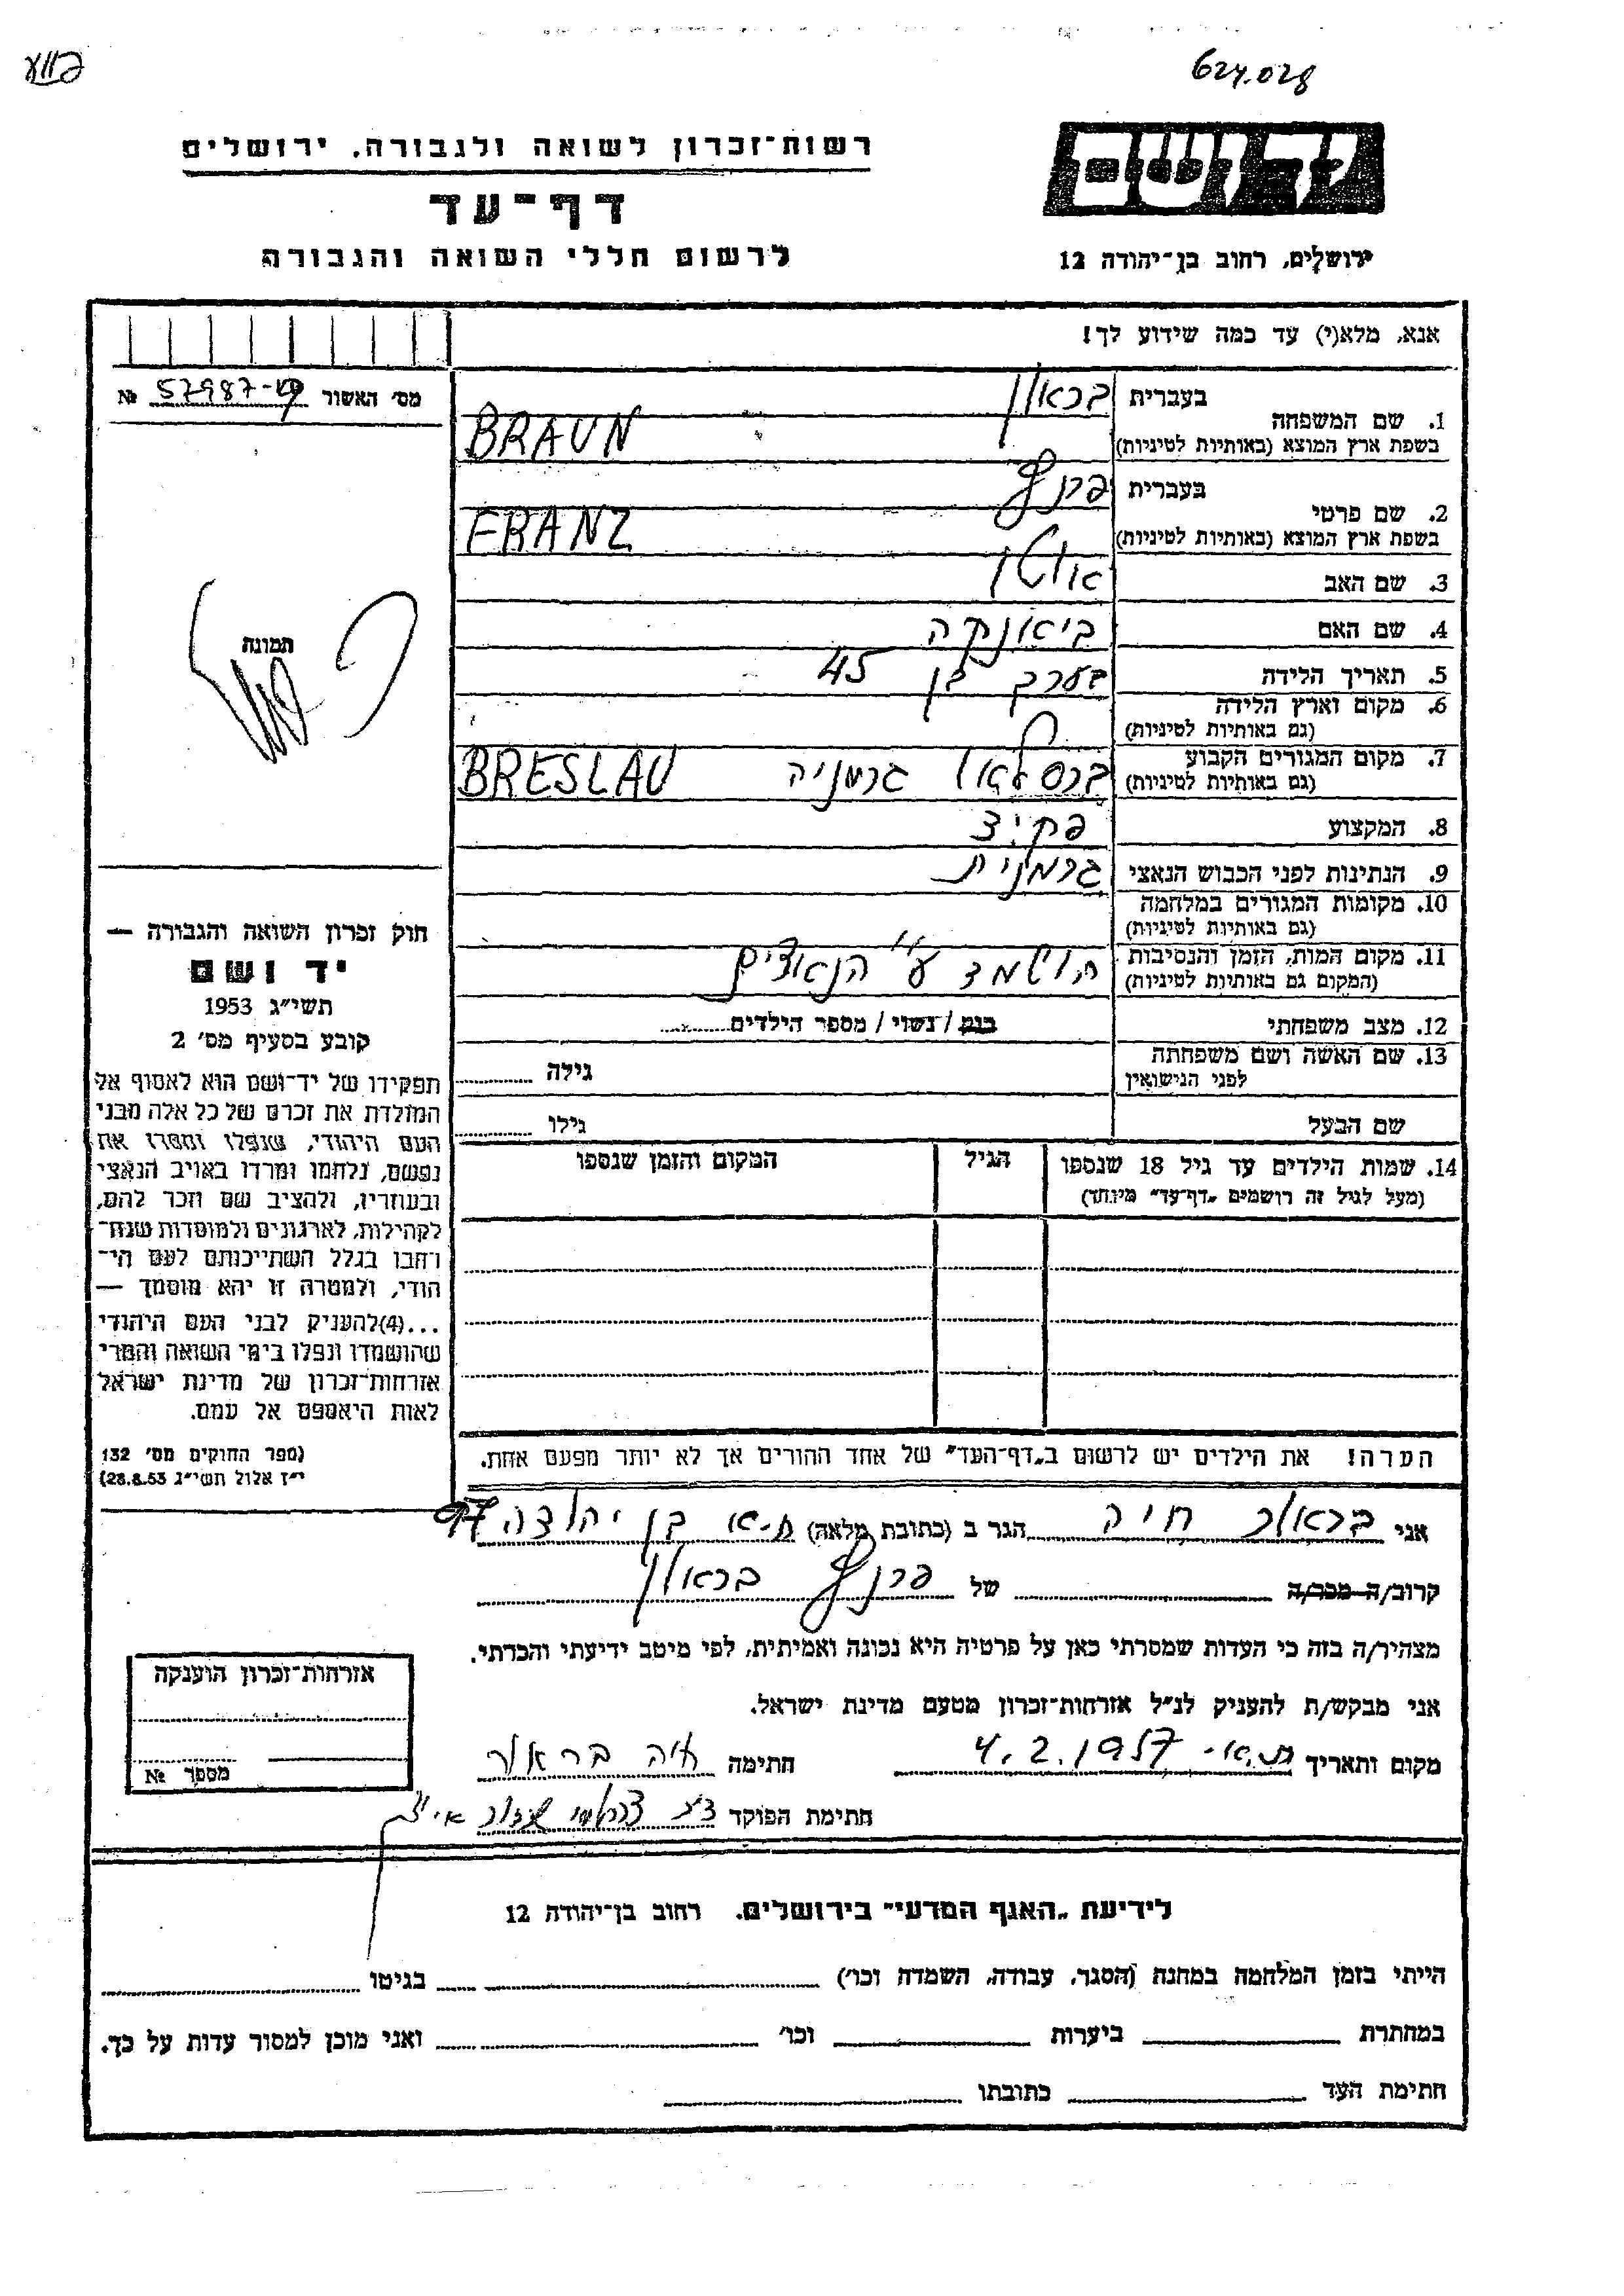 624.028
יד ושם
ירושלים, רחוב בן־יהודה 12
רשות־זכרון לשואה ולגבורה, ירושלים
דף־עד
לרשום חללי השואה והגבורה
אנא, מלא(י) עד כמה שידוע לך!
מס׳ האשור № 57987
1. שם המשפחה
בעברית בראון
בשפת ארץ המוצא (באותיות לטיניות) BRAUN
2. שם פרטי
בעברית פרנץ
בשפת ארץ המוצא (באותיות לטיניות) FRANZ
3. שם האב
4. שם האם ביאנקה
5. תאריך הלידה בערך בן 45
6. מקום וארץ הלידה
(גם באותיות לטיניות)
7. מקום המגורים הקבוע ברסלאו גרמניה BRESLAU
(גם באותיות לטיניות)
8. המקצוע פקיד
9. הנתינות לפני הכבוש הנאצי גרמנית
10. מקומות המגורים במלחמה
(גם באותיות לטיניות)
11. מקום המות, הזמן והנסיבות הושמד ע״י הנאצים
(המקום גם באותיות לטיניות)
12. מצב משפחתי רווק / נשוי / מספר הילדים
13. שם האשה ושם משפחתה גילה
לפני הנישואין
שם הבעל גילו
14. שמות הילדים עד גיל 18 שנספו הגיל המקום והזמן שנספו
(מעל לגיל זה רושמים „דף־עד״ מיוחד)
הערה! את הילדים יש לרשום ב„דף־העד״ של אחד ההורים אך לא יותר מפעם אחת.
תמונה
חוק זכרון השואה והגבורה —
יד ושם
תשי״ג 1953
קובע בסעיף מס׳ 2
תפקידו של יד־ושם הוא לאסוף אל
המולדת את זכרם של כל אלה מבני
העם היהודי, שנפלו ומסרו את
נפשם, נלחמו ומרדו באויב הנאצי
ובעוזריו, ולהציב שם וזכר להם,
לקהילות, לארגונים ולמוסדות שנח־
רחבו בגלל השתייכותם לעם הי־
הודי, ולמטרה זו יהא מוסמך —
...(4)להעניק לבני העם היהודי
שהושמדו ונפלו בימי השואה והמרי
אזרחות־זכרון של מדינת ישראל
לאות היאספם אל עמם.
(ספר החוקים מס׳ 132
י״ז אלול תשי״ג 28.8.53)
אני בראור חיה הגר ב (כתובת מלאה) ת.א בן יהודה 97
קרוב/ה מכר/ה של פרנץ בראון
מצהיר/ה בזה כי העדות שמסרתי כאן על פרטיה היא נכונה ואמיתית, לפי מיטב ידיעתי והכרתי.
אני מבקש/ת להעניק לנ״ל אזרחות־זכרון מטעם מדינת ישראל.
מקום ותאריך ת.א. 4.2.1957 חתימה חיה בראור
חתימת הפוקד
אזרחות־זכרון הוענקה
מספר №
לידיעת „האגף המדעי״ בירושלים. רחוב בן־יהודה 12
הייתי בזמן המלחמה במחנה (הסגר, עבודה, השמדה וכו׳) בגיטו
במחתרת ביערות וכו׳ ואני מוכן למסור עדות על כך.
חתימת העד כתובתו